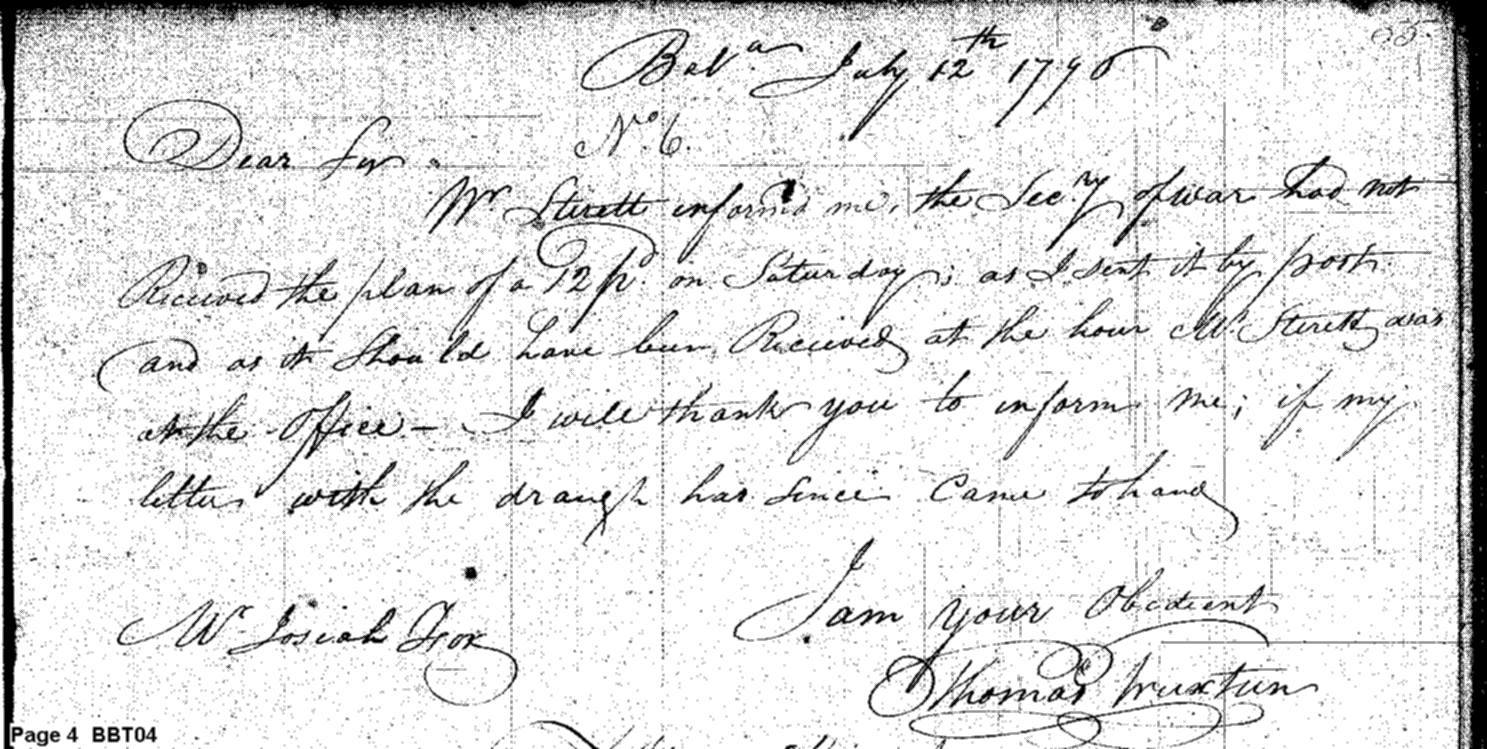 55.
Balt.a July 12th 1796
No. 6.
Dear Sir
Mr Sterett informd me, the Sec.ry of war had not
Received the plan of a 12 pd. on Saturday; as I sent it by post
and as it Should have been Received at the hour Mr Sterett was
at the office — I will thank you to inform me; if my
letter with the draugh has since Came to hand
I am your Obedient
Mr Josiah Fox
Thomas Truxtun
Page 4 BBT04